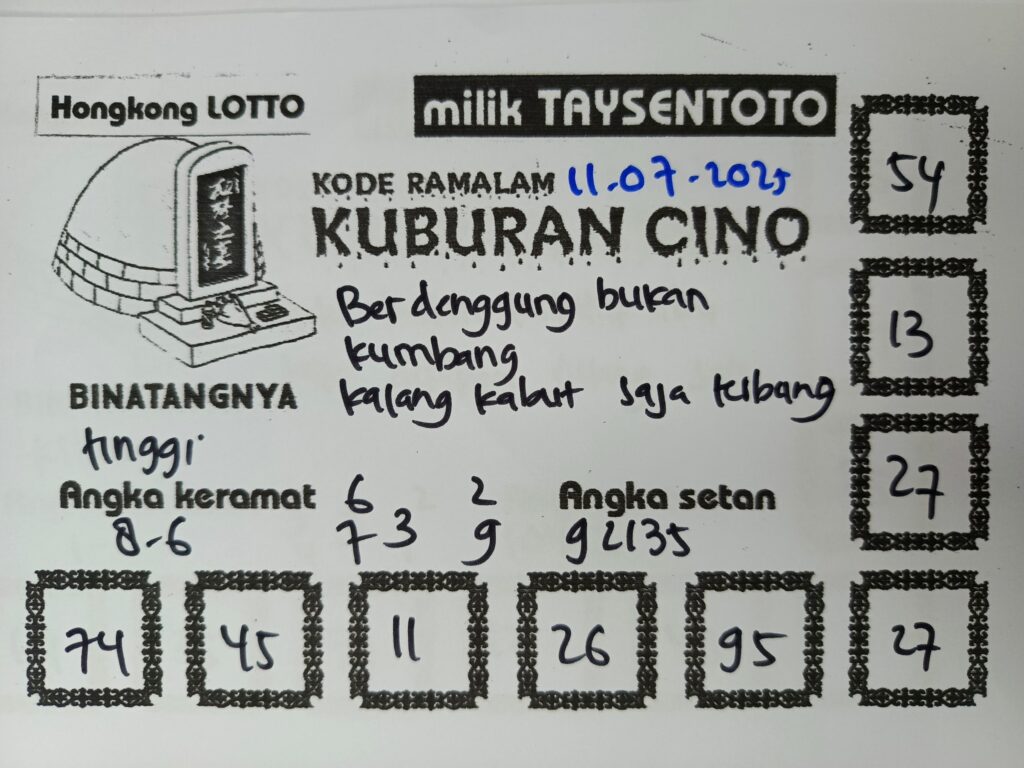 Hongkong LOTTO
milik TAYSENTOTO
KODE RAMALAM 11.07.2025
KUBURAN CINO
54
Berdenggung bukan
kumbang
kalang kabut saja terbang
13
BINATANGNYA
tinggi
27
Angka keramat
8-6
6 2
7 3 9
Angka setan
92135
74 45 11 26 95 27